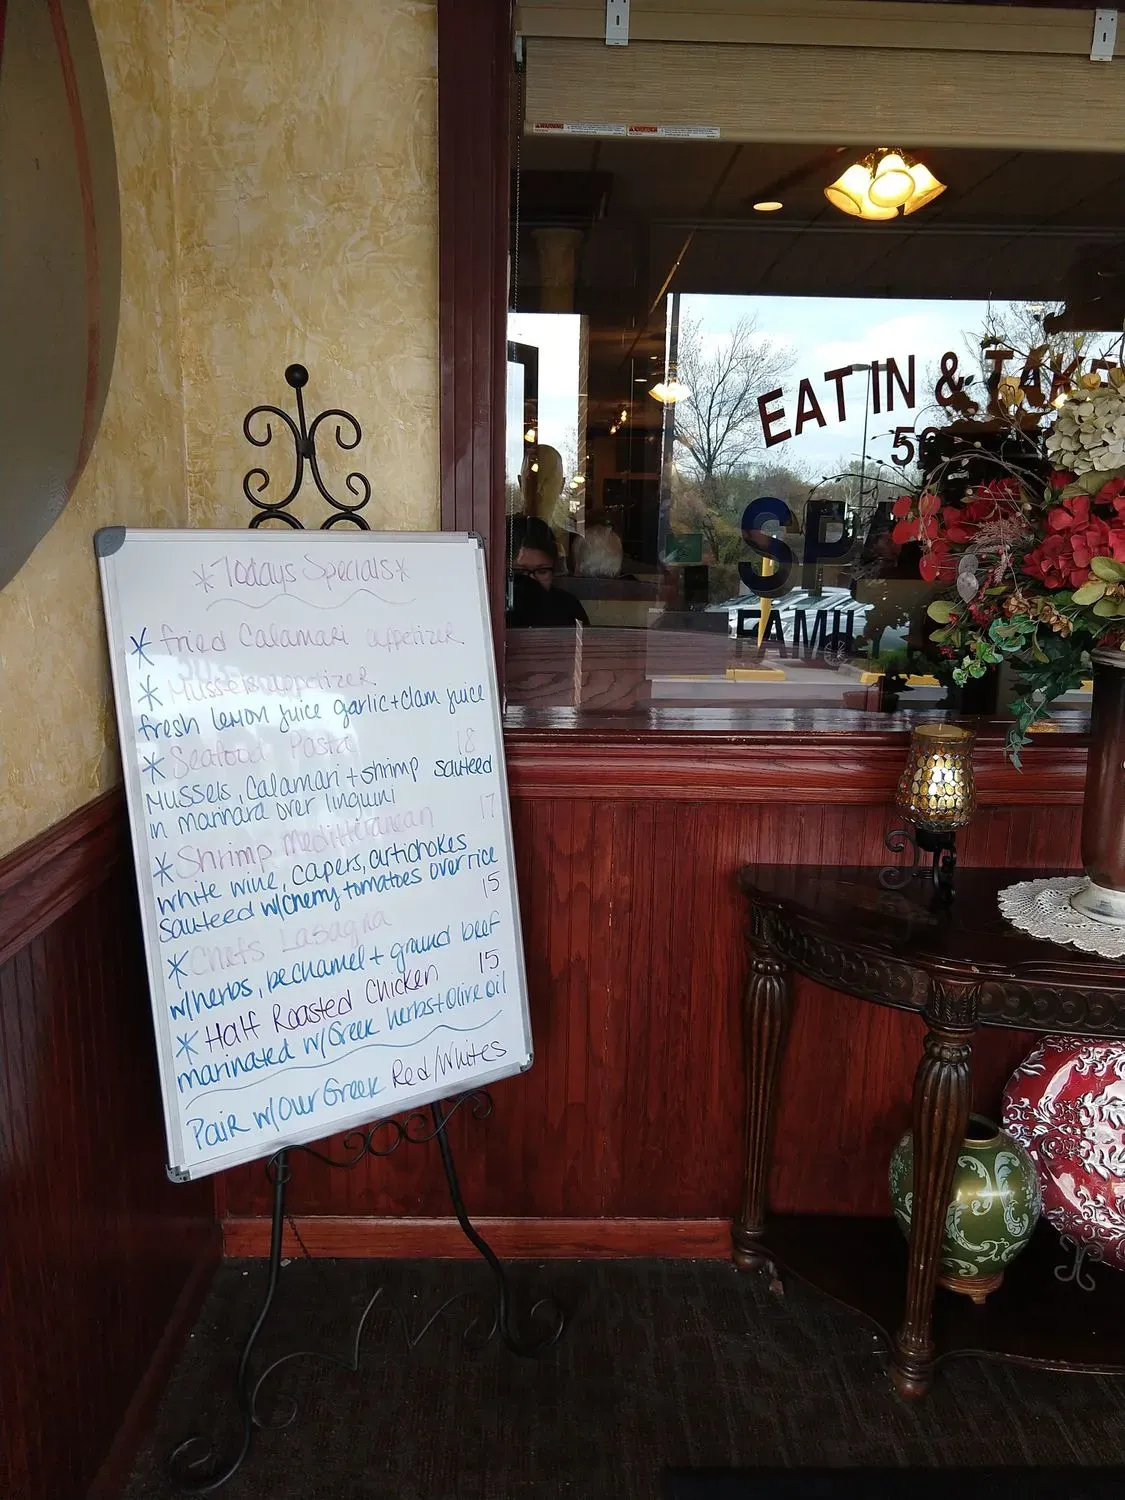 *Todays Specials*
* fried Calamari appetizer
* Mussels appetizer
fresh lemon juice garlic + clam juice
* Seafood Pasta 18
Mussels, Calamari + shrimp sauteed
in marinara over linguini
* Shrimp Mediterranean 17
white wine, capers, artichokes
sauteed w/cherry tomatoes over rice
* Chefs Lasagna 15
w/herbs, bechamel + ground beef
* Half Roasted Chicken 15
marinated w/Greek herbs + Olive oil
Pair w/Our Greek Red/Whites
WARNING
EAT IN & TAKE
FAMIL